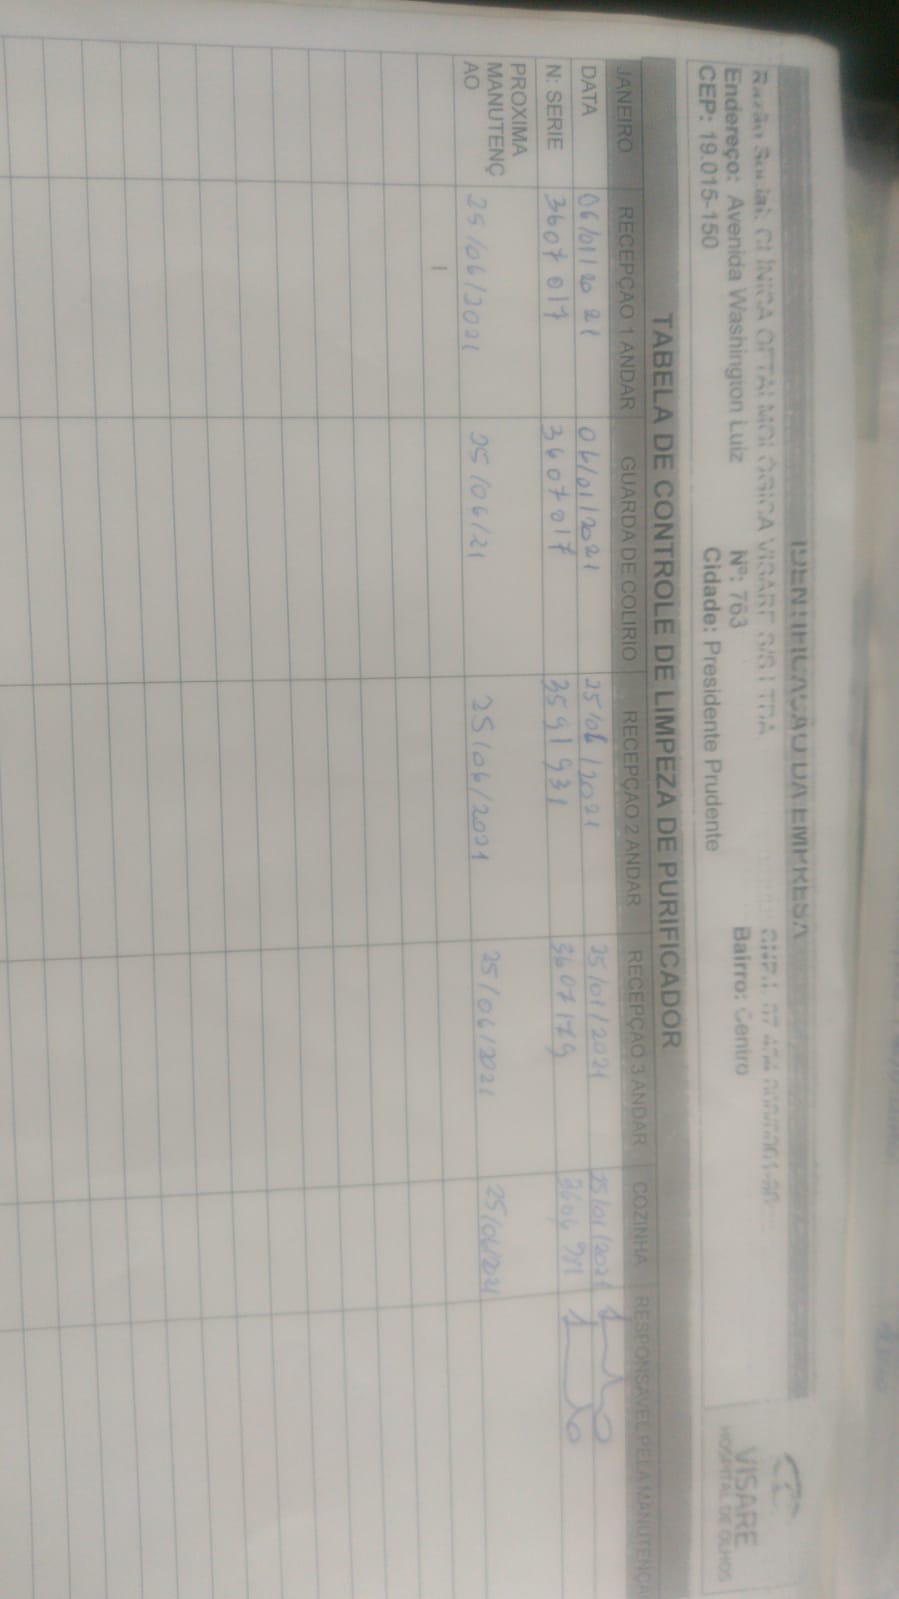 IDENTIFICAÇÃO DA EMPRESA
Razão Social: CLÍNICA OFTALMOLÓGICA VISARE S/S LTDA
Endereço: Avenida Washington Luiz Nº: 763 Bairro: Centro
CEP: 19.015-150 Cidade: Presidente Prudente
VISARE
HOSPITAL DE OLHOS
TABELA DE CONTROLE DE LIMPEZA DE PURIFICADOR
JANEIRO RECEPÇAO 1 ANDAR GUARDA DE COLIRIO RECEPÇAO 2 ANDAR RECEPÇAO 3 ANDAR COZINHA RESPONSAVEL PELA MANUTENÇA
DATA 06/01/2021 06/01/2021 25/06/2021 25/01/2021 25/01/2021
N: SERIE 3607017 3607017 3591931 3607179
PROXIMA
MANUTENÇ
AO 25/06/2021 25/06/21 25/06/2021 25/06/2021 25/06/2021